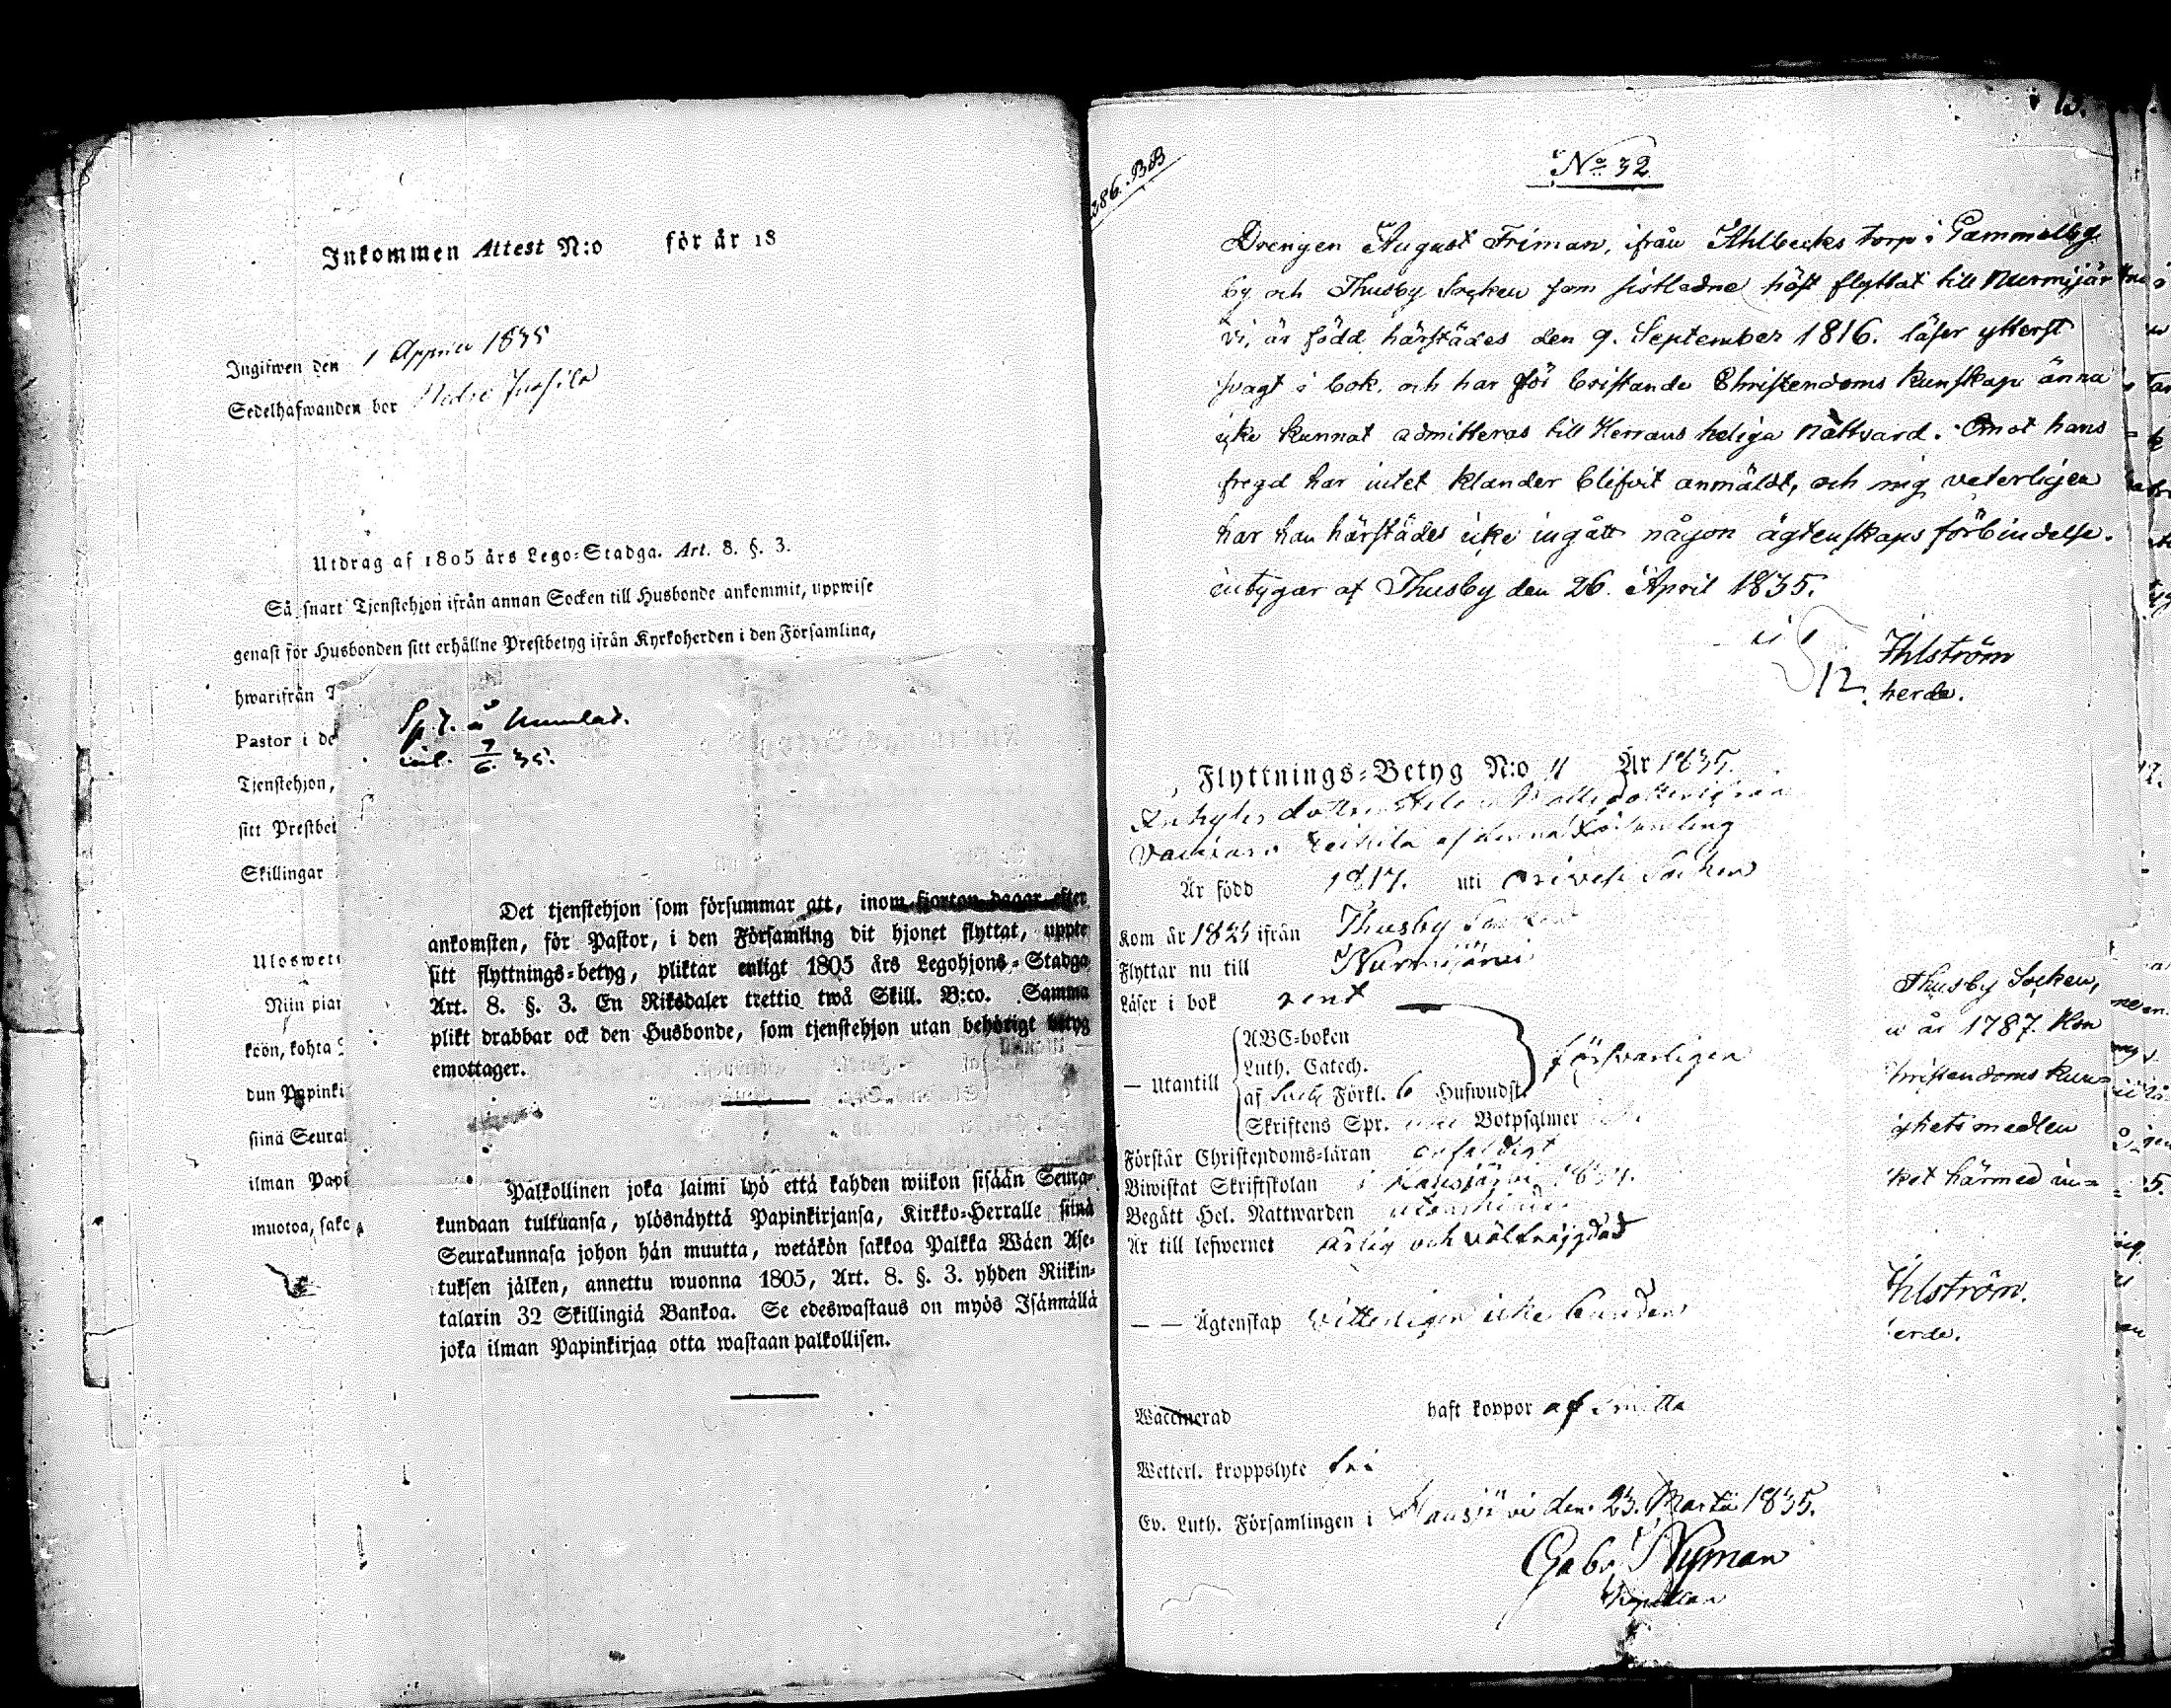 Inkommen Attest N:o för år 18
Ingifwen den 1 Apprill 1835
Sedelhafwanden bor
Utdrag af 1805 års Lego=Stadga. Art. 8. §. 3.
Så snart Tjenstehjon ifrån annan Socken till Husbonde ankommit, uppwise
genast för Husbonden sitt erhållne Prestbetyg ifrån Kyrkoherden i den Församling,
hwarifrån
Pastor i de
Tjenstehjon,
sitt Prestbet
Skillingar
Uloswet
Niin pian
köön, kohta
dun Papinki
siinä Seura
ilman Papi
muotoa, sako
inl. 7/6. 35.
Det tjenstehjon som försummar att, inom fjorton dagar efter
ankomsten, för Pastor, i den Församling dit hjonet flyttat, uppte
sitt flyttnings=betyg, pliktar enligt 1805 års Legohjons=Stadga
Art. 8. §. 3. En Riksdaler trettio twå Skill. B:co. Samma
plikt drabbar ock den Husbonde, som tjenstehjon utan behörigt betyg
emottager.
Palkollinen joka laimi lyö että kahden wiikon sisään Seura=
kundaan tultuansa, ylösnäyttä Papinkirjansa, Kirkko=Herralle siinä
Seurakunnasa johon hän muutta, wetäkön sakkoa Palkka Wäen Ase=
tuksen jälken, annettu wuonna 1805, Art. 8. §. 3. yhden Riikin=
talarin 32 Skillingiä Bankoa. Se edeswastaus on myös Isännällä
joka ilman Papinkirjaa otta wastaan palkollisen.
286. BB
No 32
Drengen August Friman, ifrån Ahlbecks torp i Gammelby
by och Thusby Socken som sistledne höst flyttat till Nurmijär
vi, är född härstädes den 9. September 1816. läser ytterst
svagt i bok, och har för bristande Christendoms kunskap ännu
icke kunnat admitteras till Herrans heliga Nattvard. Emot hans
fregd har intet klander blifvit anmäldt, och mig veterligen
har han härstädes icke ingått någon ägtenskaps förbindelse.
intygar af Thusby den 26 April 1835.
Ihlström
herde.
12.
Flyttnings=Betyg N:o 11 År 1835.
af denna Församling
Är född 1817. uti Orivesi Socken
Kom år 1825 ifrån Thusby Socken
Flyttar nu till Nurmijärvi
Läser i bok rent
— utantill
ABC=boken
Luth. Catech.
af Förkl. 6 Hufwudst.
Skriftens Spr. Botpsalmer
försvarligen
Förstår Christendoms=läran enfaldigt
Biwistat Skriftskolan i Hausjärvi 1834.
Begått Hel. Nattwarden
Är till lefwernet ärlig och välfräjdad
— — Ägtenskap Vitterligen icke bunden
Waccinerad haft koppor af smitta
Wetterl. kroppslyte fri
Ev. Luth. Församlingen i Hausjärvi den 23. Martii 1835.
Gabr. Nyman
Thusby Socken,
år 1787. Hon
hristendoms kun=
ghetsmedlen
ket härmed in=
Ihlström.
erde.